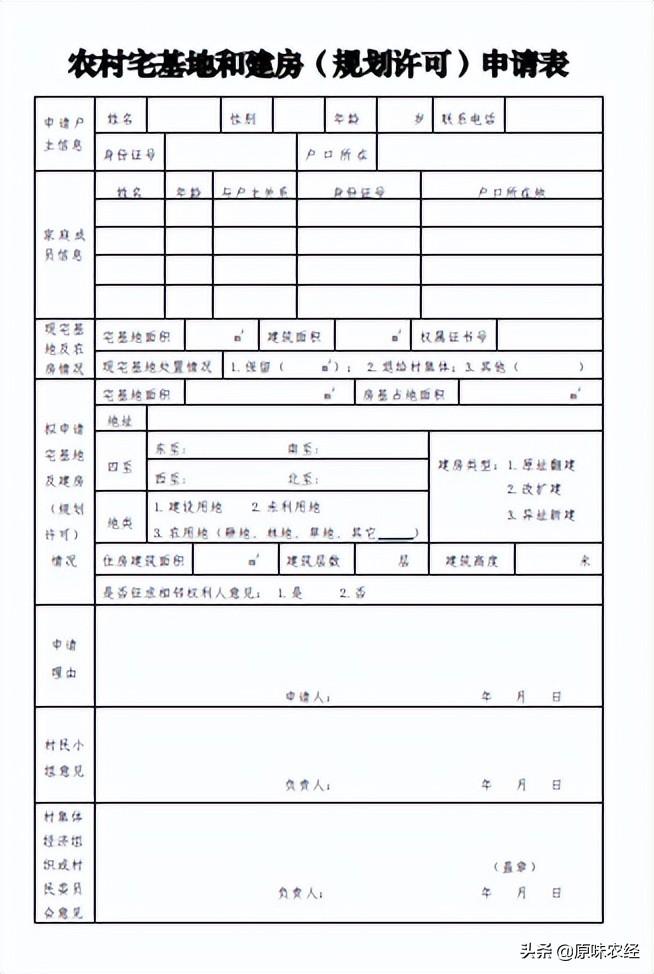 农村宅基地和建房（规划许可）申请表
申请户主信息 姓名 性别 年龄 岁 联系电话
身份证号 户口所在
家庭成员信息 姓名 年龄 与户主关系 身份证号 户口所在地
现宅基地及农房情况 宅基地面积 ㎡ 建筑面积 ㎡ 权属证书号
现宅基地处置情况 1.保留（ ㎡）； 2.退给村集体； 3.其他（ ）
拟申请宅基地及建房（规划许可）情况 宅基地面积 ㎡ 房基占地面积 ㎡
地址
四至 东至： 南至： 建房类型：1.原址翻建
西至： 北至： 2.改扩建
3.异址新建
地类 1.建设用地 2.未利用地
3.农用地（耕地、林地、草地、其它____）
住房建筑面积 ㎡ 建筑层数 层 建筑高度 米
是否征求相邻权利人意见：1.是 2.否
申请理由
申请人： 年 月 日
村民小组意见
负责人： 年 月 日
村集体经济组织或村民委员会意见
（盖章）
负责人： 年 月 日
头条 @原味农经